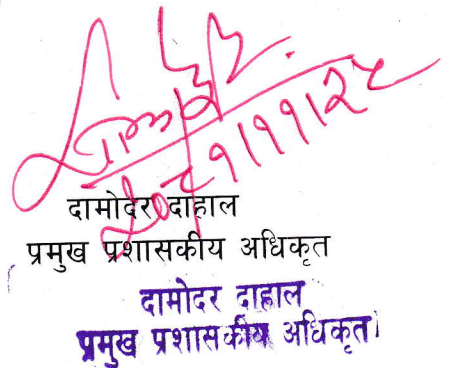 २०८१।११।२८
दामोदर दाहाल
प्रमुख प्रशासकीय अधिकृत
दामोदर दाहाल
प्रमुख प्रशासकीय अधिकृत